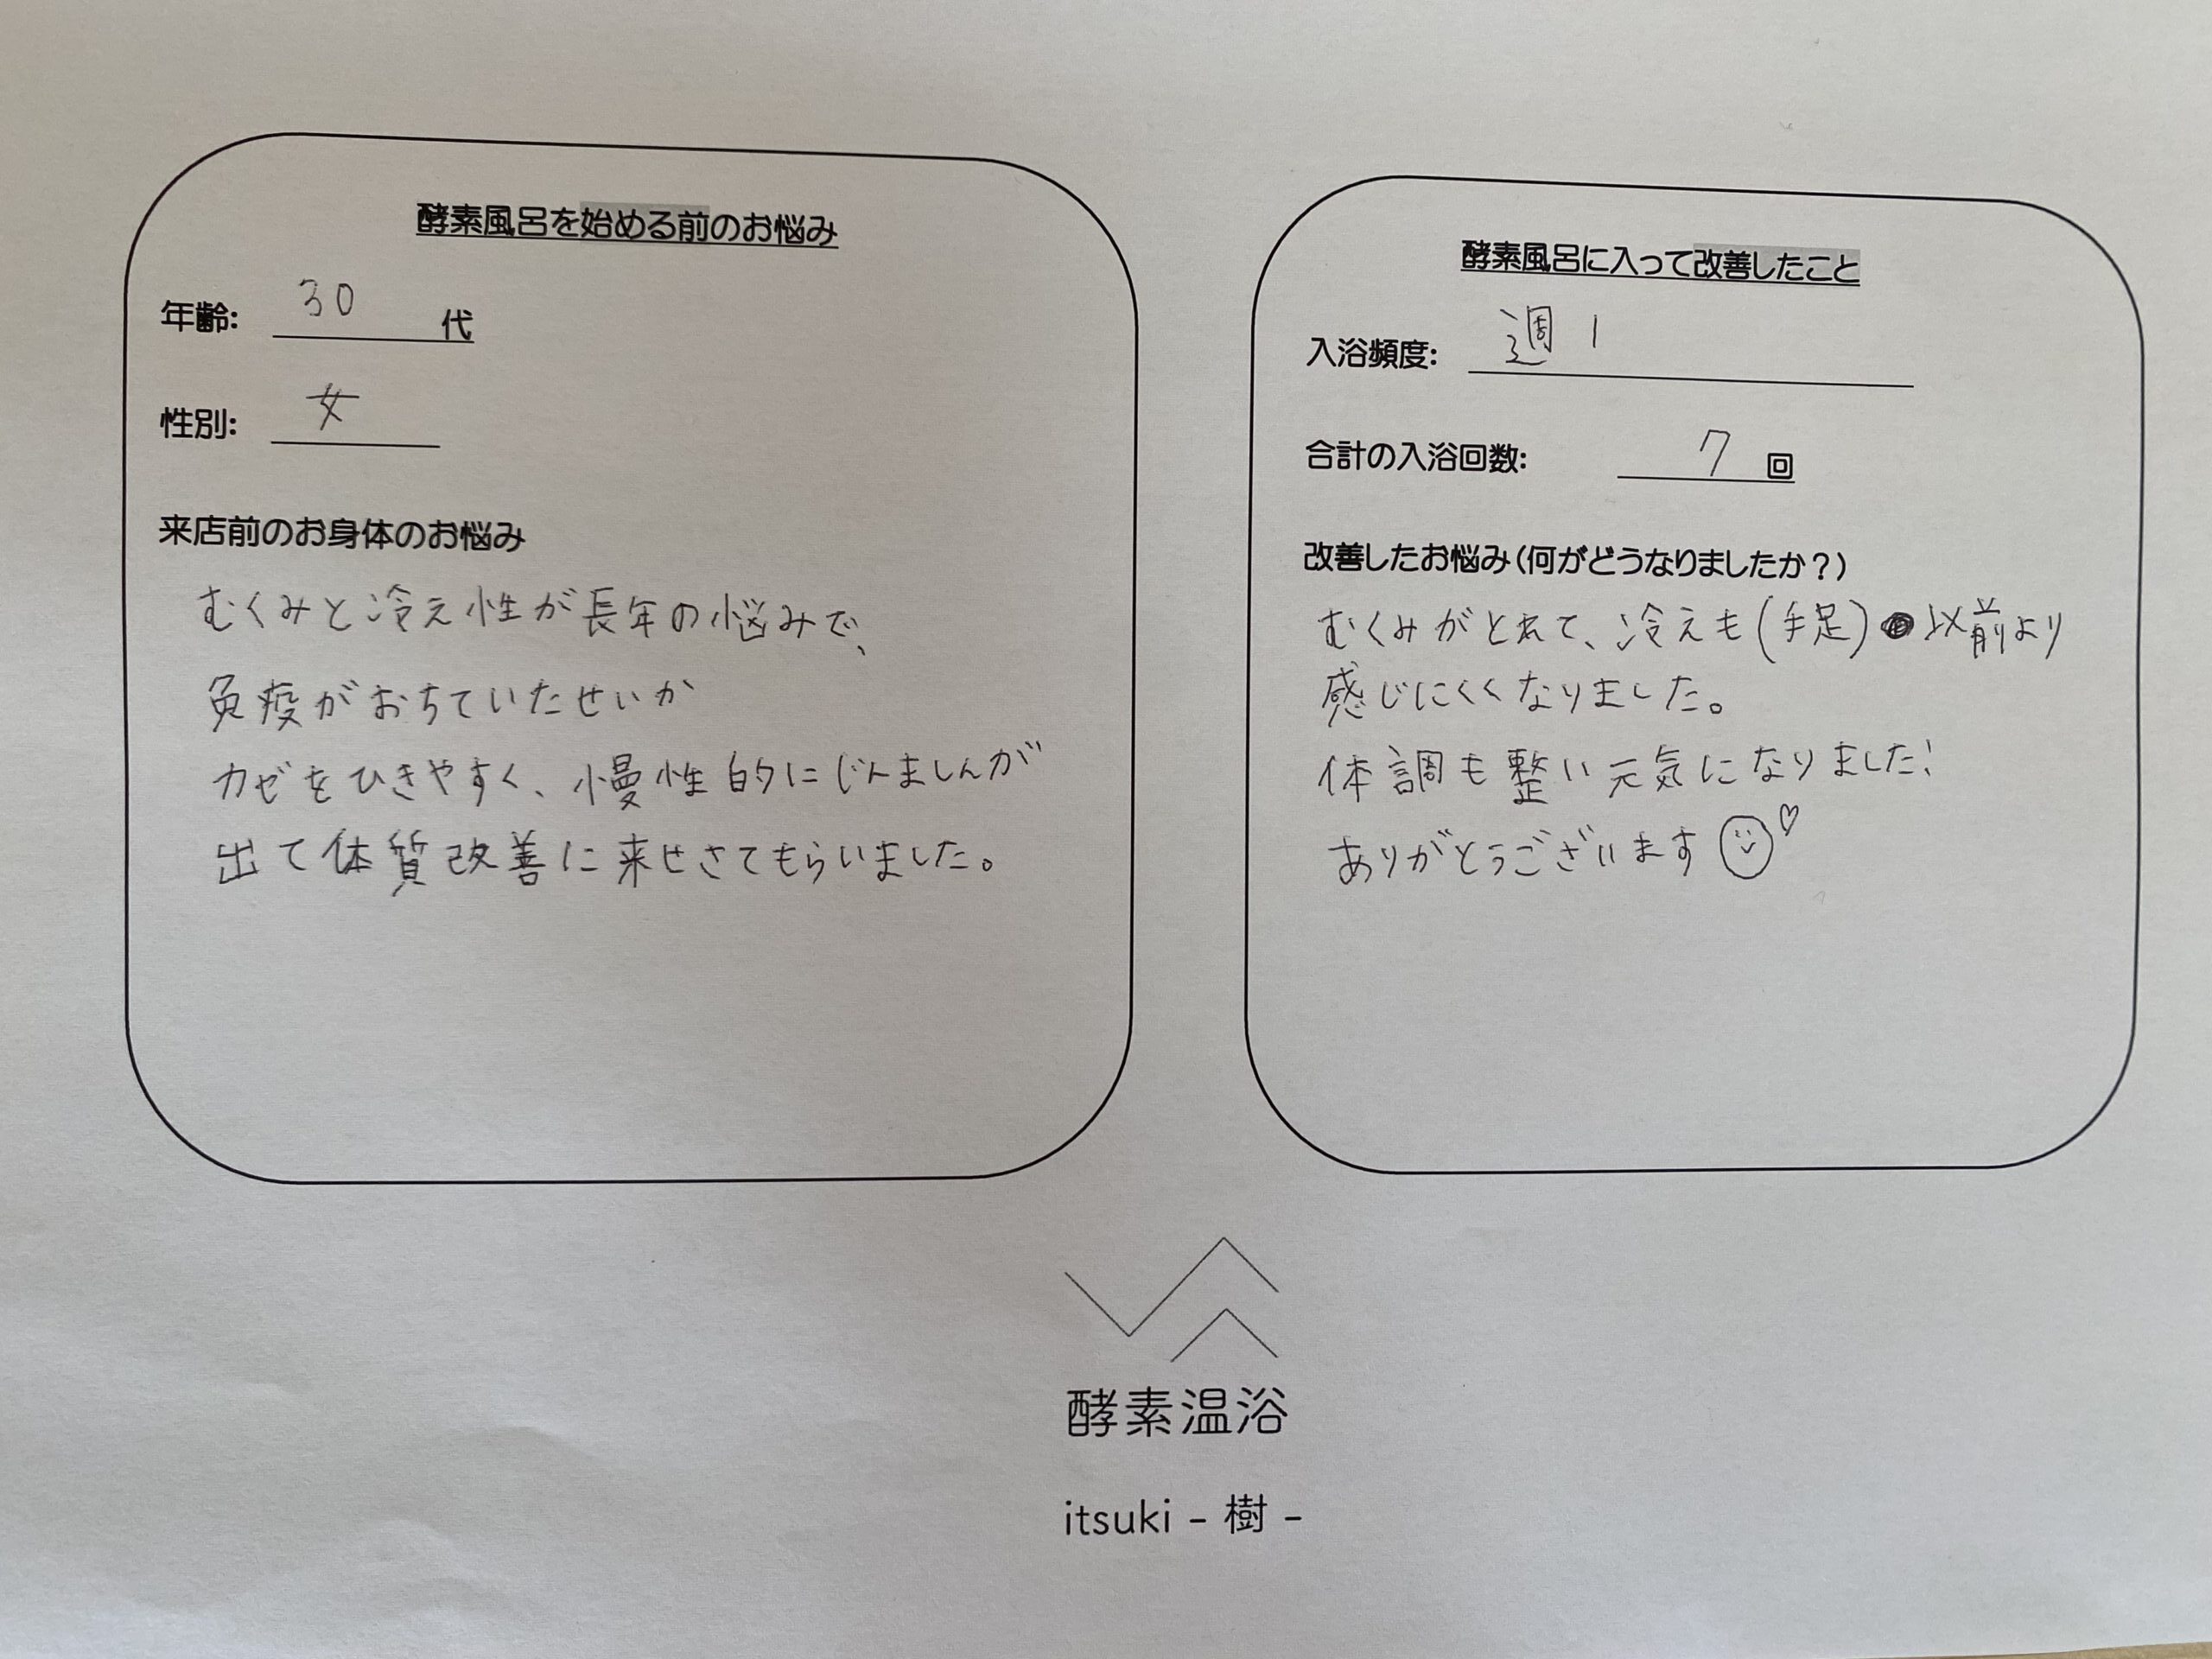 酵素風呂を始める前のお悩み
年齢: 30 代
性別: 女
来店前のお身体のお悩み
むくみと冷え性が長年の悩みで、
免疫がおちていたせいか
カゼをひきやすく、慢性的にじんましんが
出て体質改善に来せさてもらいました。
酵素風呂に入って改善したこと
入浴頻度: 週1
合計の入浴回数: 7 回
改善したお悩み(何がどうなりましたか？)
むくみがとれて、冷えも(手足)以前より
感じにくくなりました。
体調も整い元気になりました!
ありがとうございます
酵素温浴
itsuki - 樹 -